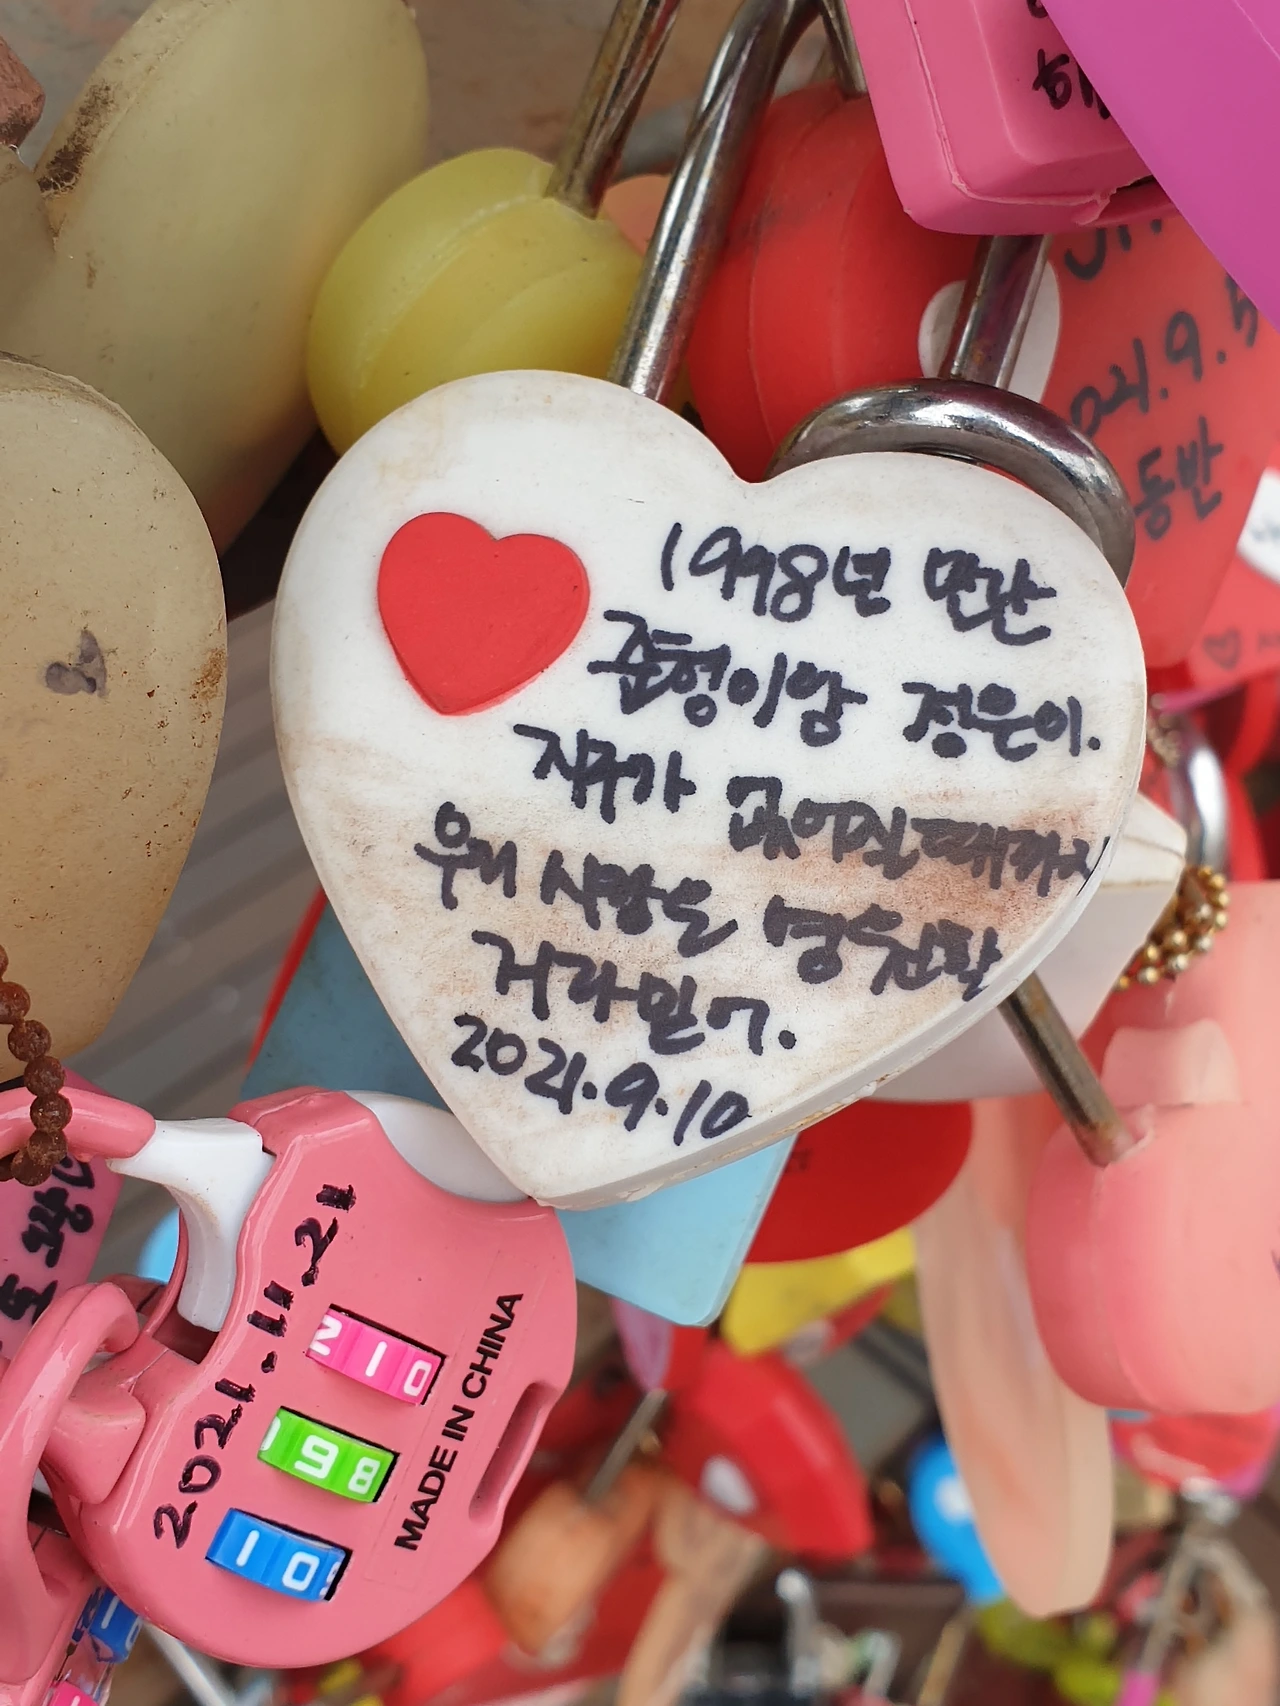 1998년 만난
준형이랑 정은이.
지구가 없어질때까지
우리 사랑은 영원할
거라 믿어.
2021.9.10
2021.9.5
동반
2021.11.21
210
198
10
MADE IN CHINA